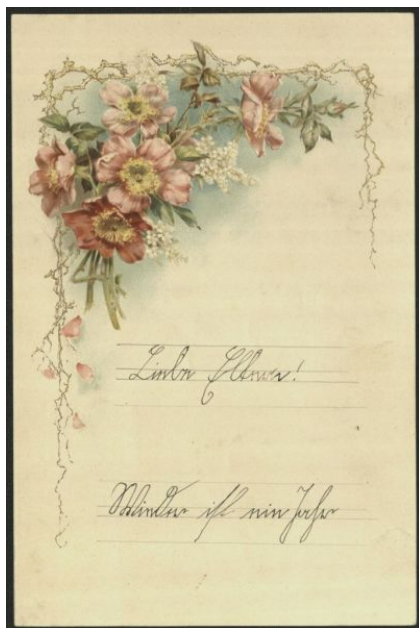 Liebe Eltern!
Wieder ist ein Jahr